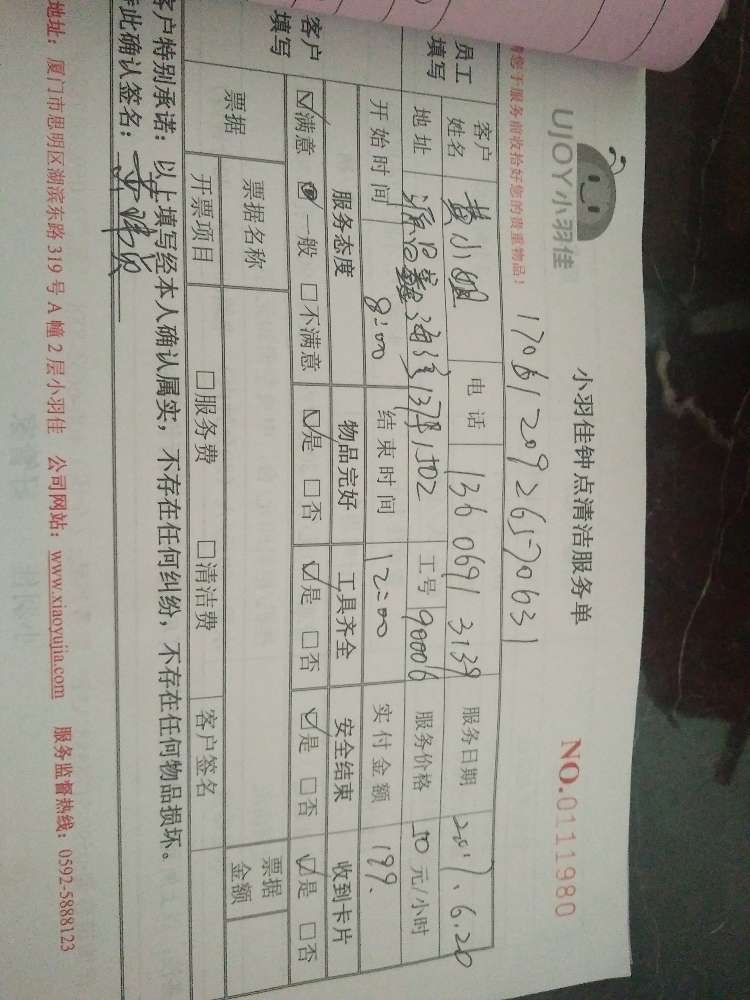 UJOY小羽佳
小羽佳钟点清洁服务单
NO.0111980
您于服务前收拾好您的贵重物品！
员工填写
客户姓名 黄小姐 电话 服务日期 2017.6.20
地址 工号 90006 服务价格 50元/小时
开始时间 8:00 结束时间 12:00 实付金额 199.
客户填写
服务态度 物品完好 工具齐全 安全结束 收到卡片
☑满意 一般 □不满意 ☑是 □否 ☑是 □否 ☑是 □否 ☑是 □否
票据 票据名称 票据金额
开票项目 □服务费 □清洁费 客户签名
客户特别承诺：以上填写经本人确认属实，不存在任何纠纷，不存在任何物品损坏。
特此确认签名：
地址：厦门市思明区湖滨东路319号A幢2层小羽佳 公司网站：www.xiaoyujia.com 服务监督热线：0592-5888123